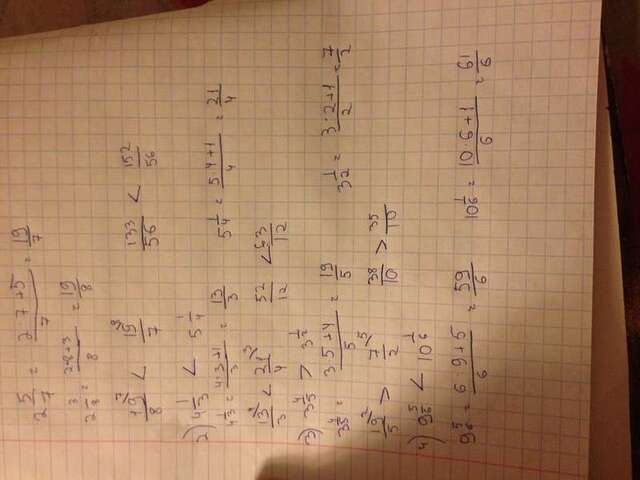 2 5/7 = 2·7+5/7 = 19/7
2 3/8 = 2·8+3/8 = 19/8
19/8 ⁷ < 19/7 ⁸ 133/56 < 152/56
2) 4 1/3 < 5 1/4
4 1/3 = 4·3+1/3 = 13/3 5 1/4 = 5·4+1/4 = 21/4
13/3 ⁴ < 21/4 ³ 52/12 < 63/12
3) 3 4/5 > 3 1/2
3 4/5 = 3·5+4/5 = 19/5 3 1/2 = 3·2+1/2 = 7/2
19/5 ² > 7/2 ⁵ 38/10 > 35/10
4) 9 5/6 < 10 1/6
9 5/6 = 6·9+5/6 = 59/6 10 1/6 = 10·6+1/6 = 61/6